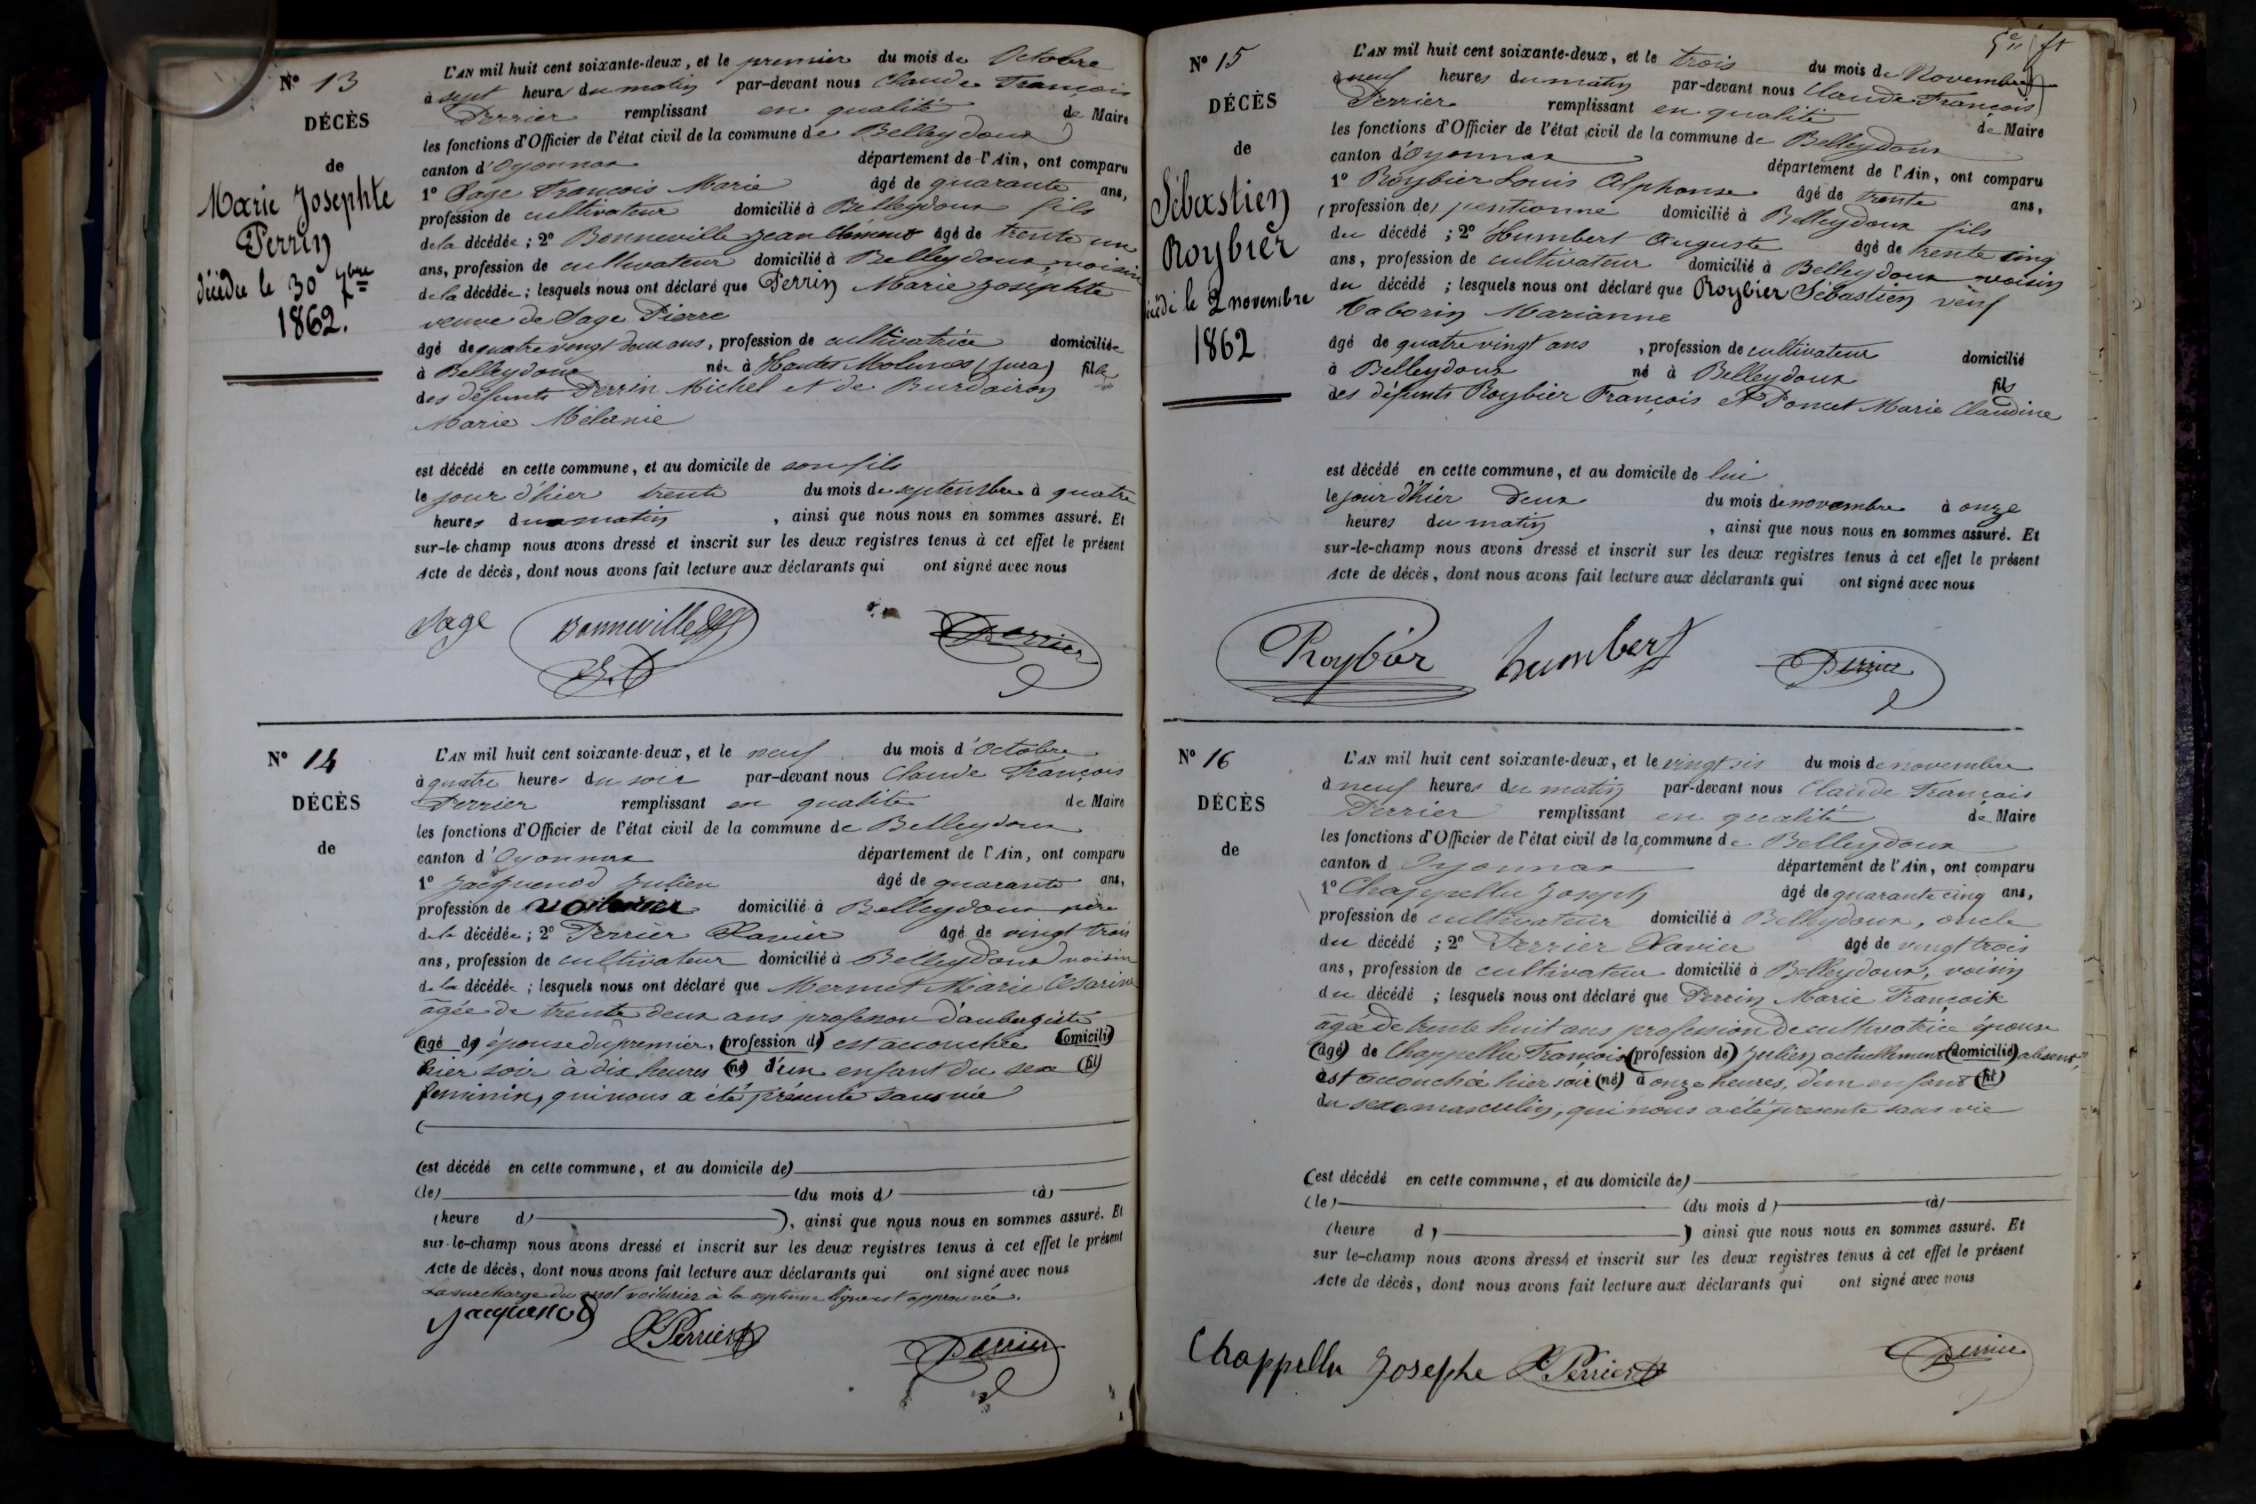 N° 13
DÉCÈS
de
Marie Josephte
Perrin
décédée le 30 7bre
1862.
L'AN mil huit cent soixante-deux, et le premier du mois de Octobre
à sept heures du matin par-devant nous Claude François
Perrier remplissant en qualité de Maire
les fonctions d'Officier de l'état civil de la commune de Belleydoux
canton d'Oyonnax département de l'Ain, ont comparu
1° Sage François Marie âgé de quarante ans,
profession de cultivateur domicilié à Belleydoux fils
de la décédée ; 2° Bonneville Jean Clément âgé de trente un
ans, profession de cultivateur domicilié à Belleydoux, voisin
de la décédée ; lesquels nous ont déclaré que Perrin Marie Josephte
veuve de Sage Pierre
âgé de quatre vingt deux ans, profession de cultivatrice domiciliée
à Belleydoux née à Hautes Molunes (Jura) fille
des défunts Perrin Michel et de Burdairon
Marie Mélanie
est décédé en cette commune, et au domicile de son fils
le jour d'hier trente du mois de septembre à quatre
heures du matin, ainsi que nous nous en sommes assuré. Et
sur-le-champ nous avons dressé et inscrit sur les deux registres tenus à cet effet le présent
Acte de décès, dont nous avons fait lecture aux déclarants qui ont signé avec nous
Sage Bonneville Perrier
N° 14
DÉCÈS
de
L'AN mil huit cent soixante-deux, et le neuf du mois d'Octobre
à quatre heures du soir par-devant nous Claude François
Perrier remplissant en qualité de Maire
les fonctions d'Officier de l'état civil de la commune de Belleydoux
canton d'Oyonnax département de l'Ain, ont comparu
1° Jacquenod Julien âgé de quarante ans,
profession de voiturier domicilié à Belleydoux père
de la décédée ; 2° Perrier Xavier âgé de vingt trois
ans, profession de cultivateur domicilié à Belleydoux voisin
de la décédée ; lesquels nous ont déclaré que Mermet Marie Césarine
âgée de trente deux ans profession d'aubergiste
(âgé de) épouse du premier, (profession d) est accouchée (domicilié)
hier soir à dix heures (né) d'un enfant du sexe (fil)
féminin, qui nous a été présenté sans vie
(est décédé en cette commune, et au domicile de)
(le) (du mois d) (à)
(heure d), ainsi que nous nous en sommes assuré. Et
sur-le-champ nous avons dressé et inscrit sur les deux registres tenus à cet effet le présent
Acte de décès, dont nous avons fait lecture aux déclarants qui ont signé avec nous
La surcharge du mot voiturier à la septième ligne est approuvée.
Jacquenod X Perrier Perrier
N° 15
DÉCÈS
de
Sébastien
Roybier
décédé le 2 novembre
1862
L'AN mil huit cent soixante-deux, et le trois du mois de Novembre
à neuf heures du matin par-devant nous Claude François
Perrier remplissant en qualité de Maire
les fonctions d'Officier de l'état civil de la commune de Belleydoux
canton d'Oyonnax département de l'Ain, ont comparu
1° Roybier Louis Alphonse âgé de trente ans,
(profession de) pentionné domicilié à Belleydoux fils
du décédé ; 2° Humbert Auguste âgé de trente cinq
ans, profession de cultivateur domicilié à Belleydoux voisin
du décédé ; lesquels nous ont déclaré que Roybier Sébastien veuf
Taborin Marianne
âgé de quatre vingt ans, profession de cultivateur domicilié
à Belleydoux né à Belleydoux fils
des défunts Roybier François et Poncet Marie Claudine
est décédé en cette commune, et au domicile de lui
le jour d'hier deux du mois de novembre à onze
heures du matin, ainsi que nous nous en sommes assuré. Et
sur-le-champ nous avons dressé et inscrit sur les deux registres tenus à cet effet le présent
Acte de décès, dont nous avons fait lecture aux déclarants qui ont signé avec nous
Roybier humbert Perrier
N° 16
DÉCÈS
de
L'AN mil huit cent soixante-deux, et le vingt six du mois de novembre
à neuf heures du matin par-devant nous Claude François
Perrier remplissant en qualité de Maire
les fonctions d'Officier de l'état civil de la commune de Belleydoux
canton d Oyonnax département de l'Ain, ont comparu
1° Chappellu Joseph âgé de quarante cinq ans,
profession de cultivateur domicilié à Belleydoux, oncle
du décédé ; 2° Perrier Xavier âgé de vingt trois
ans, profession de cultivateur domicilié à Belleydoux, voisin
du décédé ; lesquels nous ont déclaré que Perrin Marie Françoise
âgée de trente huit ans profession de cultivatrice épouse
(âgé) de Chappellu François (profession de) Julien actuellement (domicilié) absent,
est accouchée hier soir (né) à onze heures, d'un enfant (fil)
du sexe masculin, qui nous a été présenté sans vie
(est décédé en cette commune, et au domicile de)
(le) (du mois d) (à)
(heure d) ainsi que nous nous en sommes assuré. Et
sur le-champ nous avons dressé et inscrit sur les deux registres tenus à cet effet le présent
Acte de décès, dont nous avons fait lecture aux déclarants qui ont signé avec nous
Chappellu Josephe X Perrier Perrier